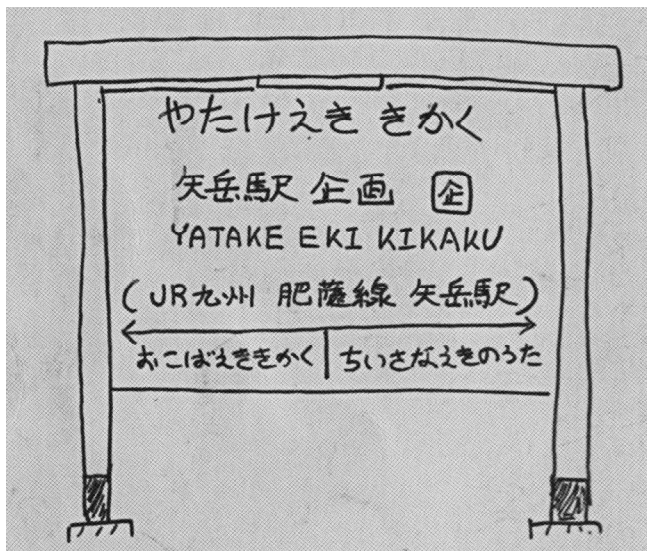 やたけえき きかく
矢岳駅 企画 企
YATAKE EKI KIKAKU
(JR九州 肥薩線 矢岳駅)
おこばえききかく ちいさなえきのうた